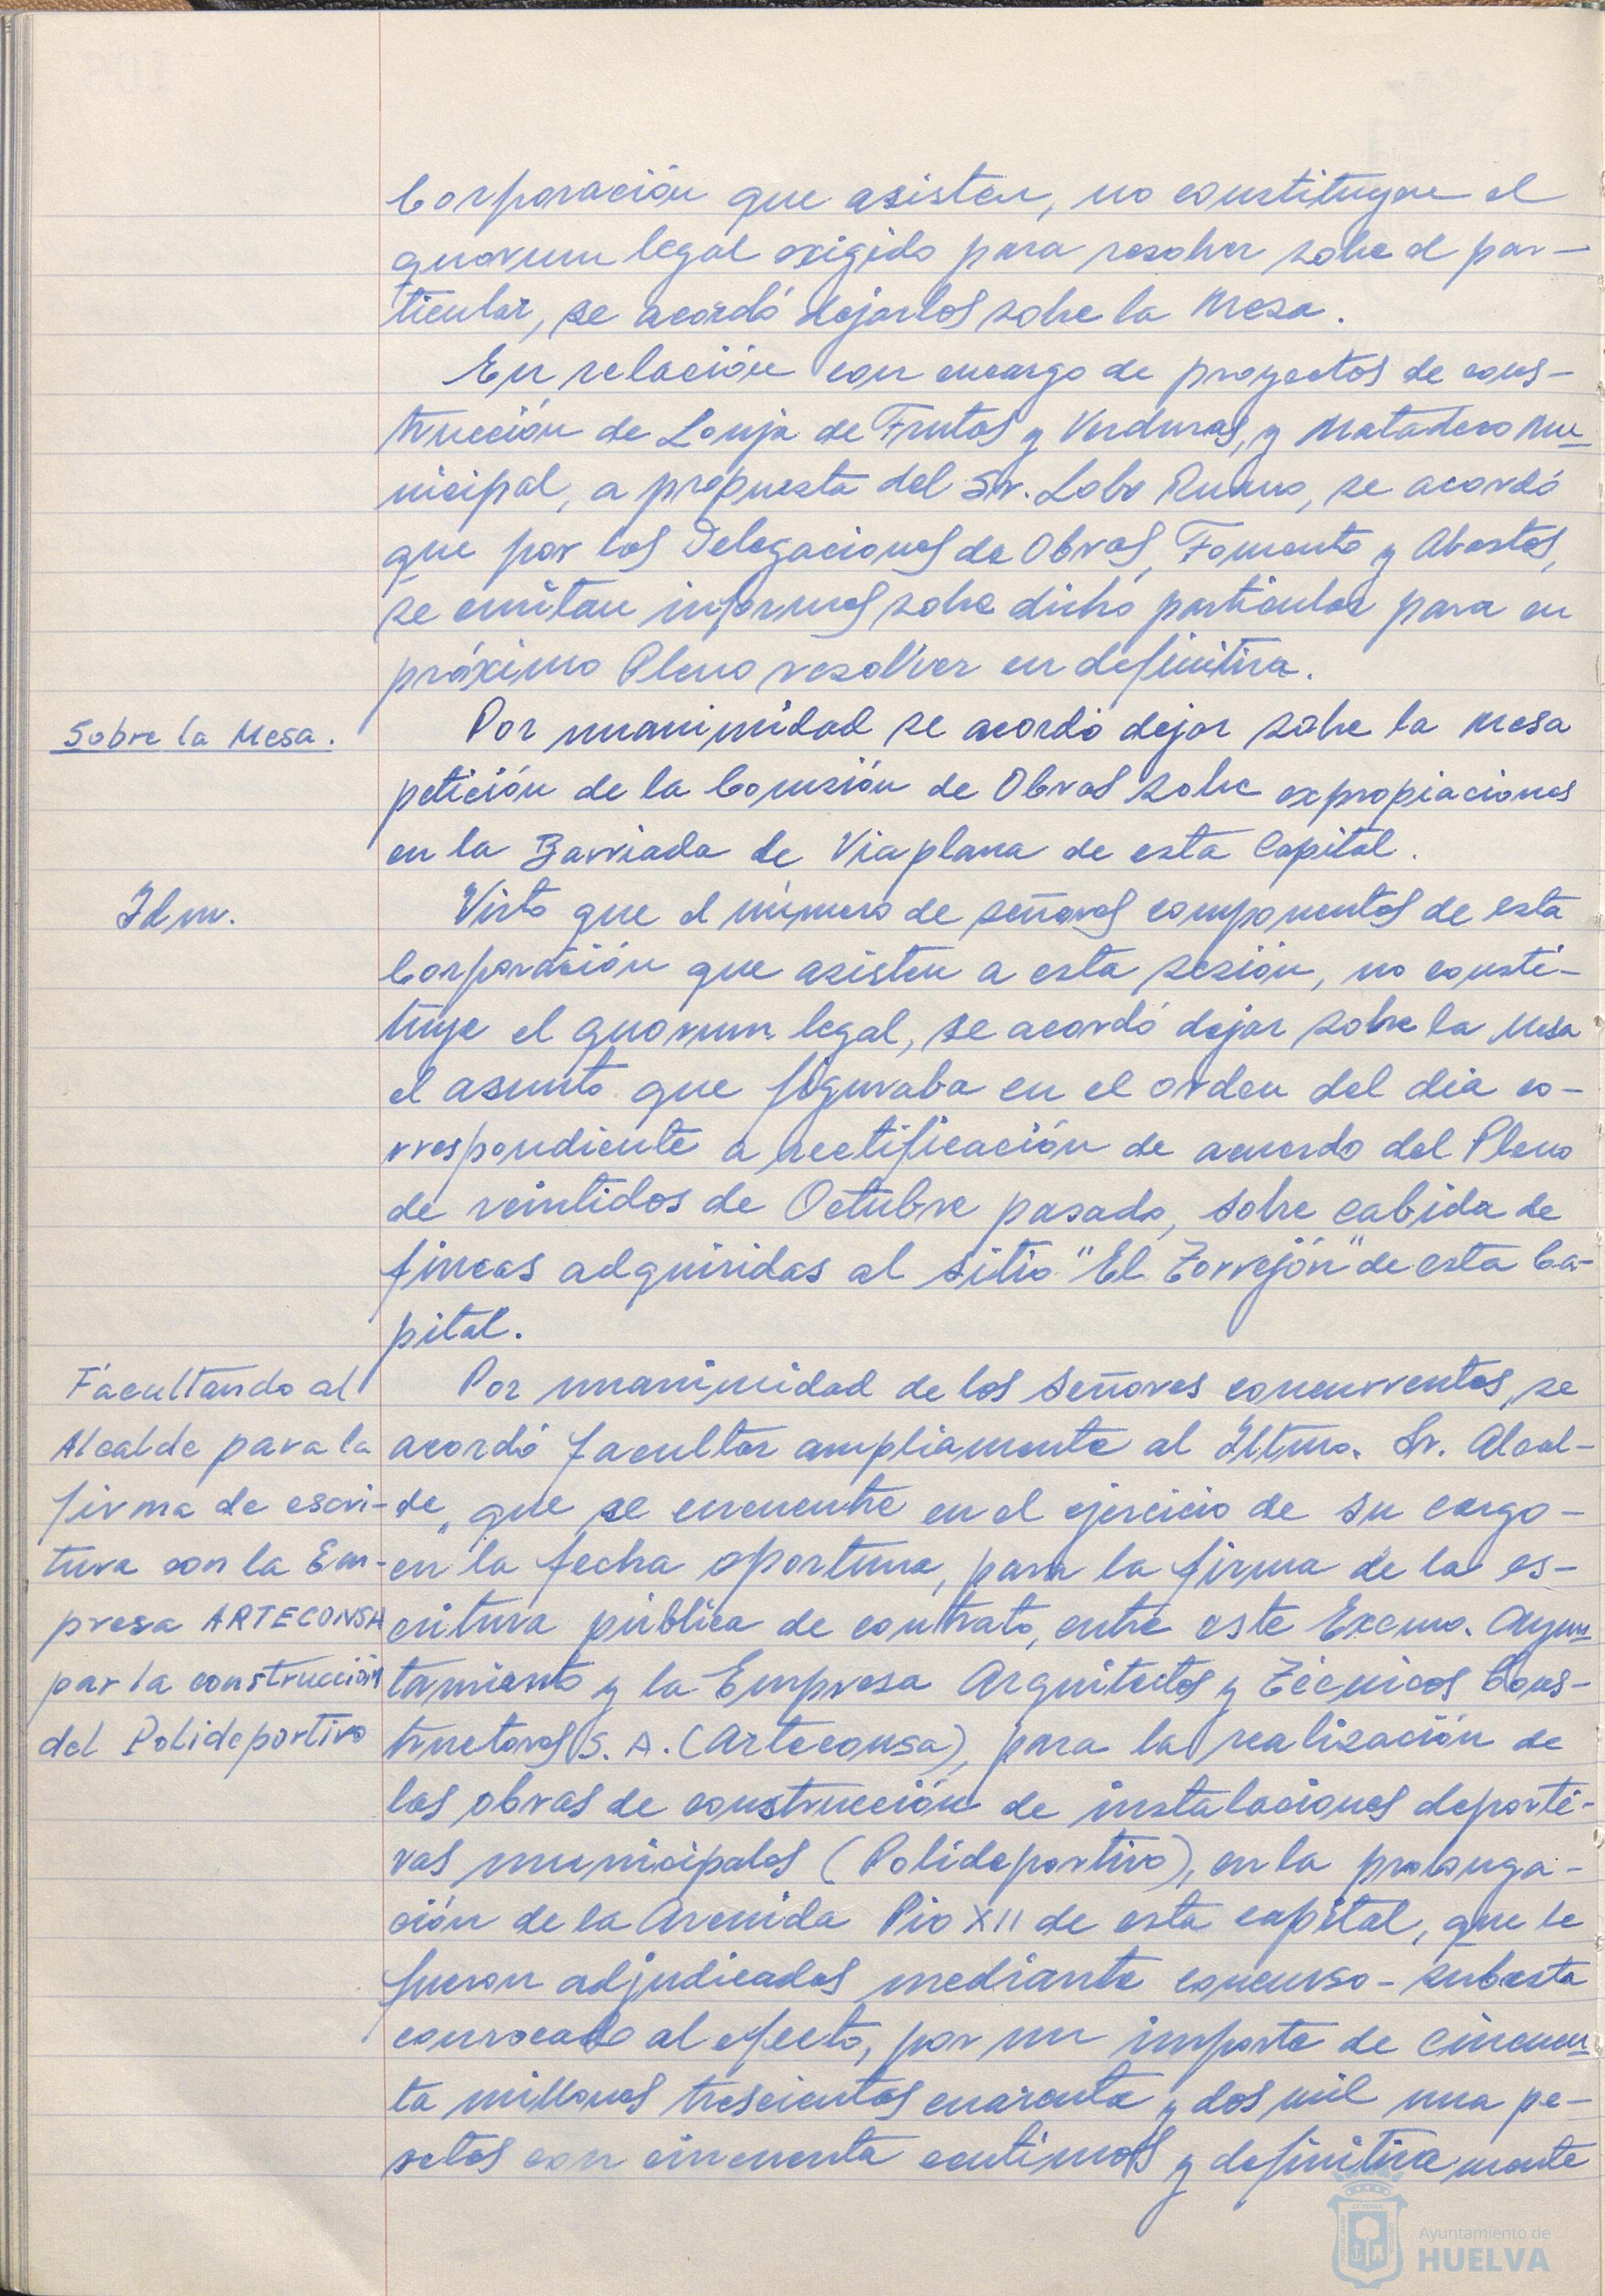 Corporación que asisten, no constituyen el
quorum legal exigido para resolver sobre el par-
ticular, se acordó dejarlos sobre la Mesa.
En relación con encargo de proyectos de cons-
trucción de Lonja de Frutas y Verduras, y Matadero Mu-
nicipal, a propuesta del Sr. Lobo Ruano, se acordó
que por las Delegaciones de Obras, Fomento y Abastos,
se emitan informes sobre dicho particular para en
próximo Pleno resolver en definitiva.
Sobre la Mesa.
Por unanimidad se acordó dejar sobre la Mesa
petición de la Comisión de Obras sobre expropiaciones
en la Barriada de Viaplana de esta Capital.
Idm.
Visto que el número de señores componentes de esta
Corporación que asisten a esta sesión, no consti-
tuye el quorum legal, se acordó dejar sobre la Mesa
el asunto que figuraba en el orden del dia co-
rrespondiente a rectificación de acuerdo del Pleno
de veintidos de Octubre pasado, sobre cabida de
fincas adquiridas al sitio "El Torrejón" de esta Ca-
pital.
Facultando al
Alcalde para la
firma de escri-
tura con la Em-
presa ARTECONSA
par la construcción
del Polideportivo
Por unanimidad de los Señores concurrentes, se
acordó facultar ampliamente al Iltmo. Sr. Alcal-
de, que se encuentre en el ejercicio de su cargo-
en la fecha oportuna, para la firma de la es-
critura pública de contrato, entre este Excmo. Ayun-
tamiento y la Empresa Arquitectos y Técnicos Cons-
tructores S. A. (Arteconsa), para la realización de
las obras de construcción de instalaciones deporti-
vas municipales (Polideportivo), en la prolonga-
ción de la Avenida Pio XII de esta capital, que le
fueron adjudicadas mediante concurso-subasta
convocado al efecto, por un importe de cincuen-
ta millones trescientas cuarenta y dos mil una pe-
setas con cincuenta centimos y definitivamente
Ayuntamiento de
HUELVA